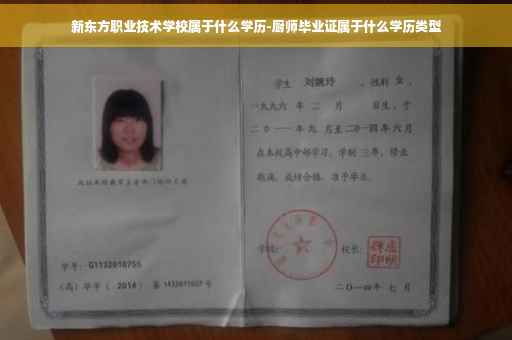 新东方职业技术学校属于什么学历-厨师毕业证属于什么学历类型
学生 刘婉玲 ，性别 女 ，
一九九六 年 二 月 日生，于
二〇一一年九 月至二〇一四年六月
在本校高中部学习，学制 三年，修业
期满，成绩合格，准予毕业。
学校： 校长：
学号： G1132010755
（高）毕字（ 2014 ）第 1432011027 号
二〇一四年 七 月